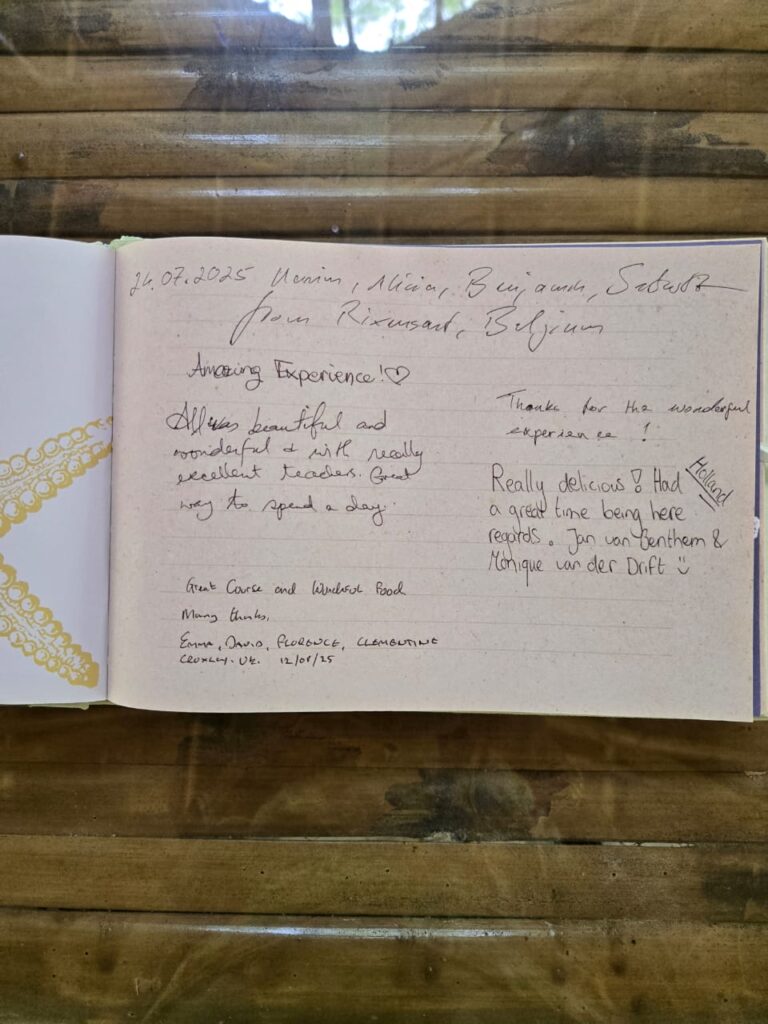 24.07.2025 Alicia, Benjamin,
from Rixensart, Belgium
Amazing Experience!♡
All was beautiful and
wonderful & with really
excellent teachers. Great
way to spend a day.
Thanks for the wonderful
experience!
Holland
Really delicious! Had
a great time being here
regards. Jan van Benthem &
Monique van der Drift
Great Course and Wonderful Food
Many thanks,
EMMA, DAVID, FLORENCE, CLEMENTINE
UK. 12/08/25